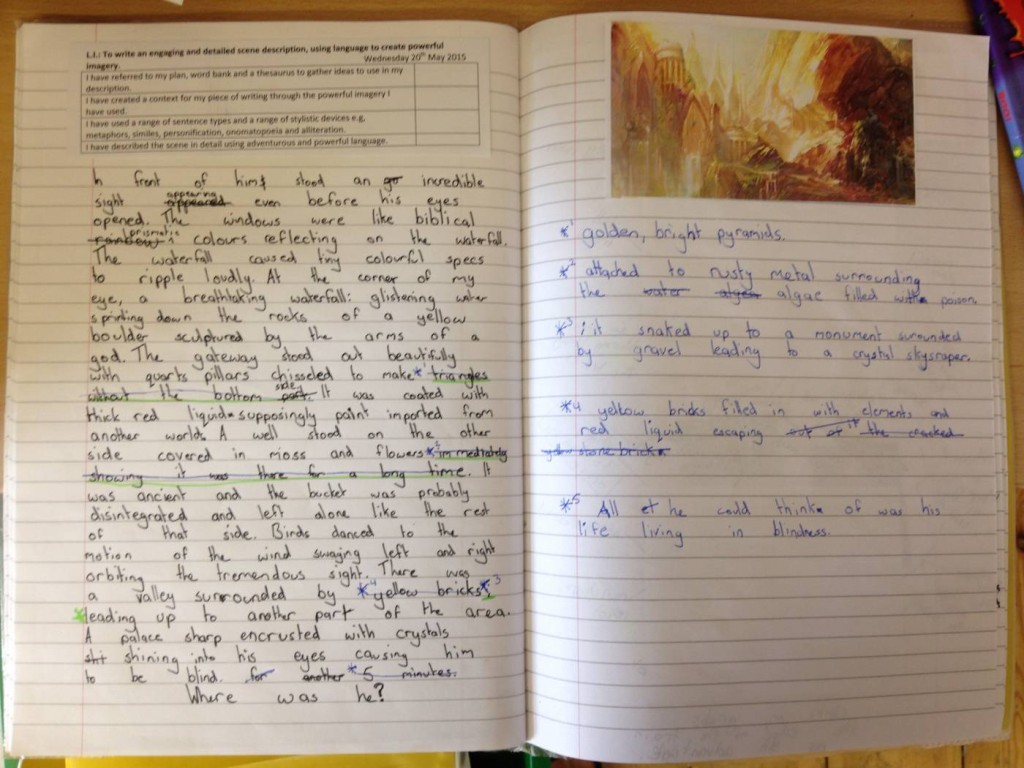 L.I.: To write an engaging and detailed scene description, using language to create powerful
imagery. Wednesday 20th May 2015
I have referred to my plan, word bank and a thesaurus to gather ideas to use in my
description.
I have created a context for my piece of writing through the powerful imagery I
have used.
I have used a range of sentence types and a range of stylistic devices e.g.
metaphors, similes, personification, onomatopoeia and alliteration.
I have described the scene in detail using adventurous and powerful language.
In front of him stood an go incredible
appearing
sight appeared even before his eyes
opened. The windows were like biblical
prismatic
rainbow colours reflecting on the waterfall.
The waterfall caused tiny colourful specs
to ripple loudly. At the corner of my
eye, a breathtaking waterfall: glistening water
sprinting down the rocks of a yellow
boulder sculptured by the arms of a
god. The gateway stood out beautifully
with quarts pillars chisseled to make * triangles
side
without the bottom part. It was coated with
thick red liquid supposingly paint imported from
another world. A well stood on the other
side covered in moss and flowers * immediately
showing it was there for a long time. It
was ancient and the bucket was probably
disintegrated and left alone like the rest
of that side. Birds danced to the
motion of the wind swaying left and right
orbiting the tremendous sight. There was
a valley surrounded by *4 yellow bricks *3
* leading up to another part of the area.
A palace sharp encrusted with crystals
shining into his eyes causing him
to be blind. for another *5 minutes.
Where was he?
*1 golden, bright pyramids.
*2 attached to rusty metal surrounding
the water algae filled with poison.
*3 ; it snaked up to a monument surrounded
by gravel leading to a crystal skysraper.
*4 yellow bricks filled in with elements and
red liquid escaping out of it the cracked
stone brick
*5 All he could think of was his
life living in blindness.